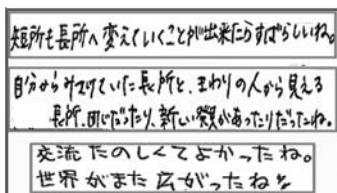 短所も長所へ変えていくことが出来たらすばらしいね。
自分からみつけていた長所と、まわりの人から見える
長所、同じだったり、新しい発見があったりだったね。
交流たのしくてよかったね。
世界がまた広がったね